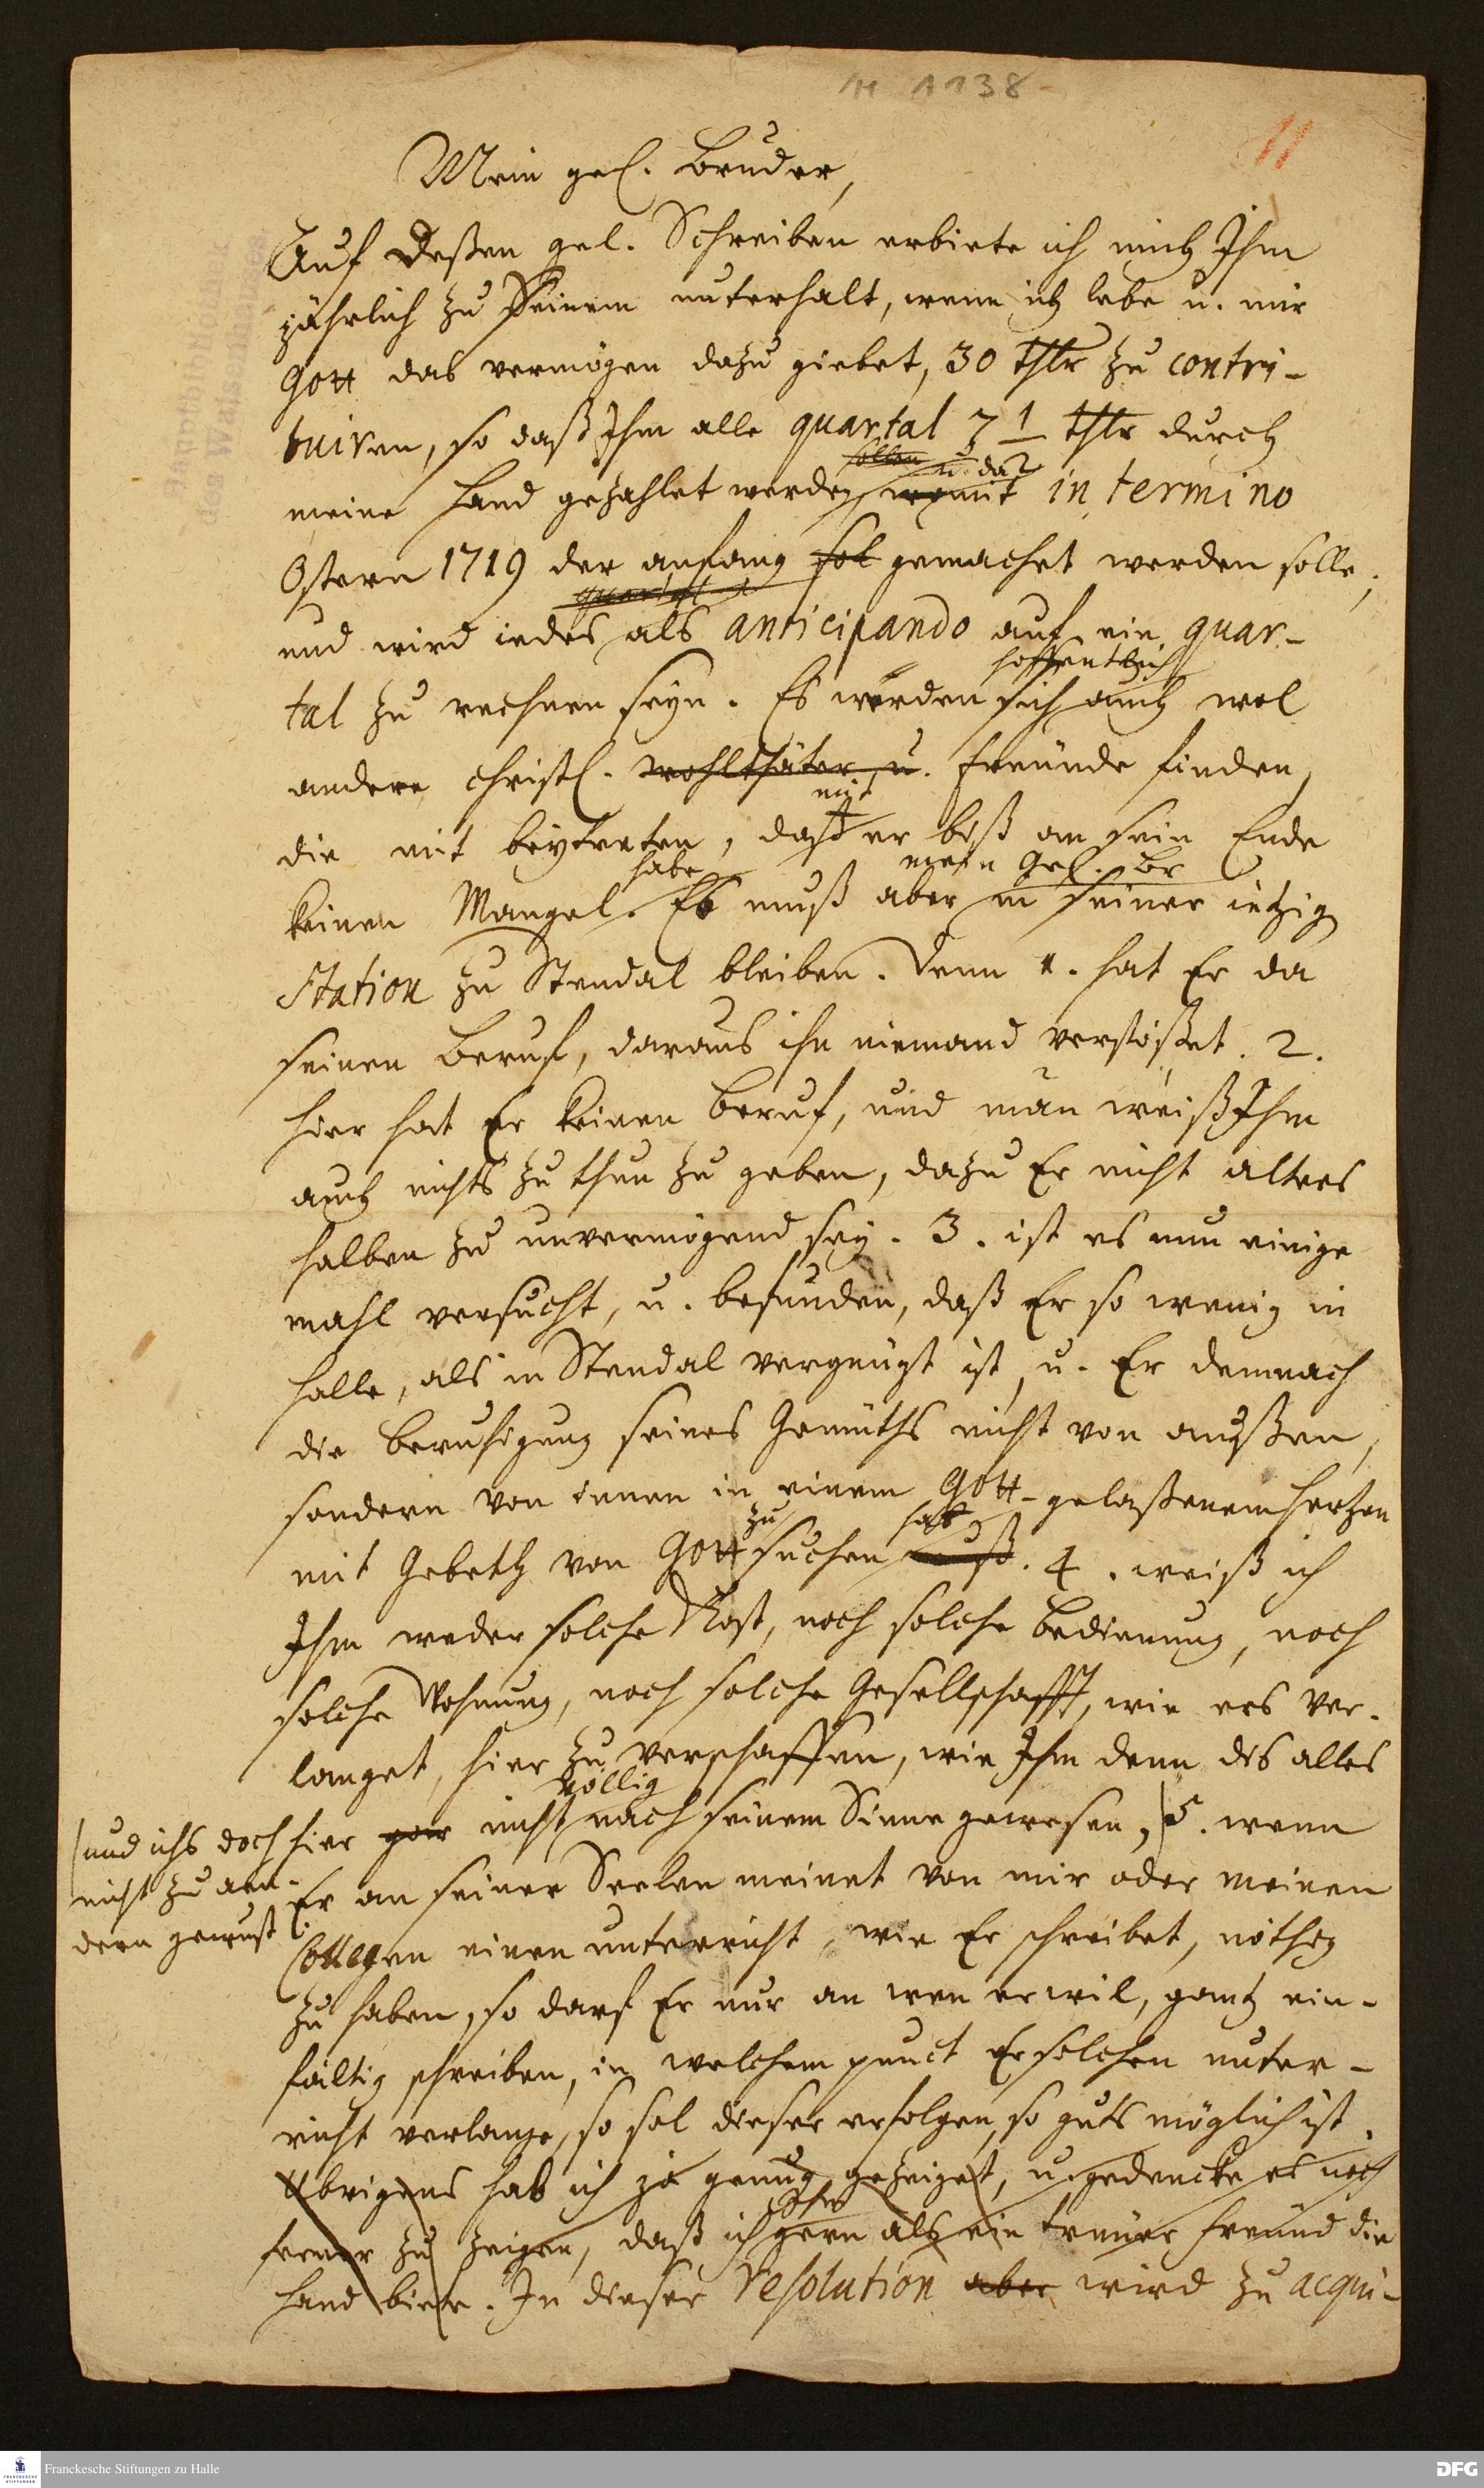 H A138
11
Mein gel. Bruder,
Auf Deßen gel. Schreiben erbiete ich mich Ihm
jährlich zu Seinem unterhalt, wenn ich lebe u. mir
Gott das vermögen dazu giebet, 30 thlr zu contri-
buiren, so daß Ihm alle quartal 7 1/2 thlr durch
sollen u. da
meine Hand gezahlet werden, mit in termino
Ostern 1719 der anfang sol gemachet werden solle;
quartal
und wird iedes als anticipando auf ein quar-
hoffentlich
tal zu rechnen seyn. Es werden sich auch wol
andere christl. wohlthäter u. Freunde finden,
mit
die mit beytreten, daß er biß an sein Ende
habe mein Gel. Br
keinen Mangel. Es muß aber in seiner ietzig
Station zu Stendal bleiben. Denn 1. hat Er da
seinen Beruf, daraus ihn niemand verstößet. 2.
hier hat Er keinen Beruf, und man weiß Ihm
auch nichts zu thun zu geben, dazu Er nicht alters
halben zu unvermögend sey. 3. ist es nun einige
mahl versucht, u. befunden, daß Er so wenig in
Halle, als in Stendal vergnügt ist, u. Er demnach
die Beruhigung seines Gemüths nicht von außen,
sondern von innen in einem Gott-gelaßenem Hertzen
zu hat
mit Gebeth von Gott suchen muß. 4. weiß ich
Ihm weder solche Kost, noch solche Bedienung, noch
solche Wohnung, noch solche Gesellschafft, wie ers ver-
langet, hier zu verschaffen, wie Ihm denn dis alles
völlig
hier gar nicht nach seinem Sinne gewesen, 5. wenn
und ichs doch
nicht zu aen-
dern gewust
Er an seiner Seelen meinet von mir oder meinen
Collegen einen unterricht, wie Er schreibet, nöthig
zu haben, so darf Er nur an wen er wil, gantz ein-
fältig schreiben, in welchem punct Er solchen unter-
richt verlange, so sol dieser erfolgen, so guts möglich ist.
Ubrigens hab ich ja genug gezeiget, u. gedencke es noch
Ihm
ferner zu zeigen, daß ich gern als ein treuer Freund die
Hand biete. In dieser resolution aber wird zu acqui-
Franckesche Stiftungen zu Halle
DFG